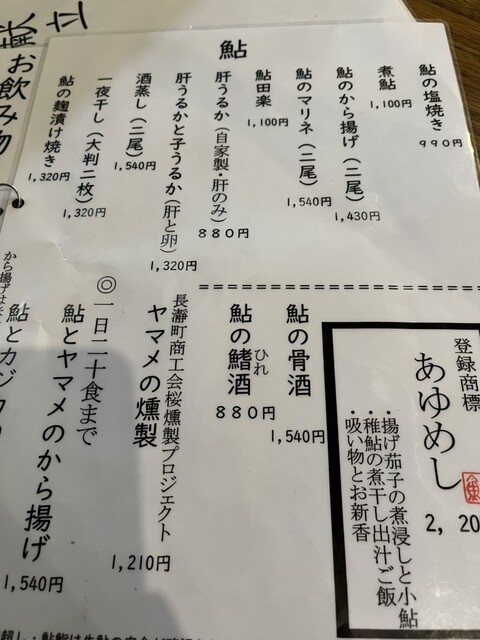 鮎
鮎の塩焼き
990円
煮鮎
1,100円
鮎のから揚げ(二尾)
1,430円
鮎のマリネ(二尾)
1,540円
鮎田楽
1,100円
肝うるか(自家製・肝のみ)
880円
肝うるかと子うるか(肝と卵)
1,320円
酒蒸し(二尾)
1,540円
一夜干し(大判二枚)
1,320円
鮎の麹漬け焼き
1,320円
登録商標
あゆめし
2,20
・揚げ茄子の煮浸しと小鮎
・稚鮎の煮干し出汁ご飯
・吸い物とお新香
鮎の骨酒
1,540円
鮎の鰭酒
ひれ
880円
長瀞町商工会桜燻製プロジェクト
ヤマメの燻製
1,210円
◎一日二十食まで
鮎とヤマメのから揚げ
1,540円
鮎とカジカの
から揚げは
お飲み物